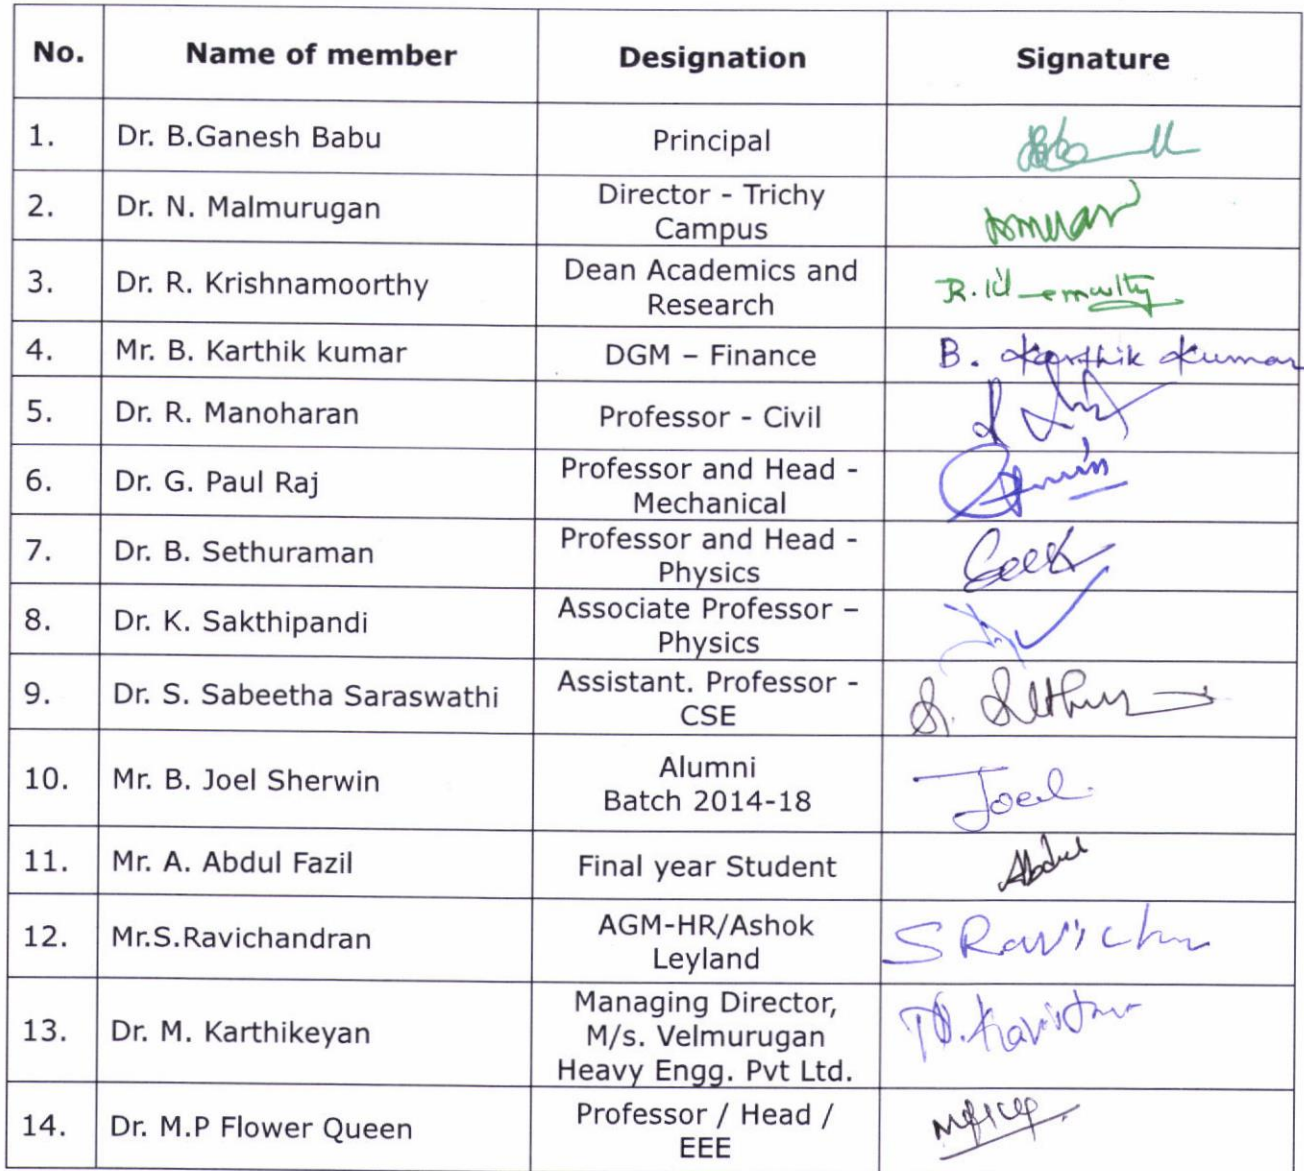 No. Name of member Designation Signature
1. Dr. B.Ganesh Babu Principal
2. Dr. N. Malmurugan Director - Trichy
Campus
3. Dr. R. Krishnamoorthy Dean Academics and
Research
4. Mr. B. Karthik kumar DGM – Finance B. Karthik Kumar
5. Dr. R. Manoharan Professor - Civil
6. Dr. G. Paul Raj Professor and Head -
Mechanical
7. Dr. B. Sethuraman Professor and Head -
Physics
8. Dr. K. Sakthipandi Associate Professor –
Physics
9. Dr. S. Sabeetha Saraswathi Assistant. Professor -
CSE
10. Mr. B. Joel Sherwin Alumni
Batch 2014-18 Joel
11. Mr. A. Abdul Fazil Final year Student Abdul
12. Mr.S.Ravichandran AGM-HR/Ashok
Leyland
13. Dr. M. Karthikeyan Managing Director,
M/s. Velmurugan
Heavy Engg. Pvt Ltd.
14. Dr. M.P Flower Queen Professor / Head /
EEE